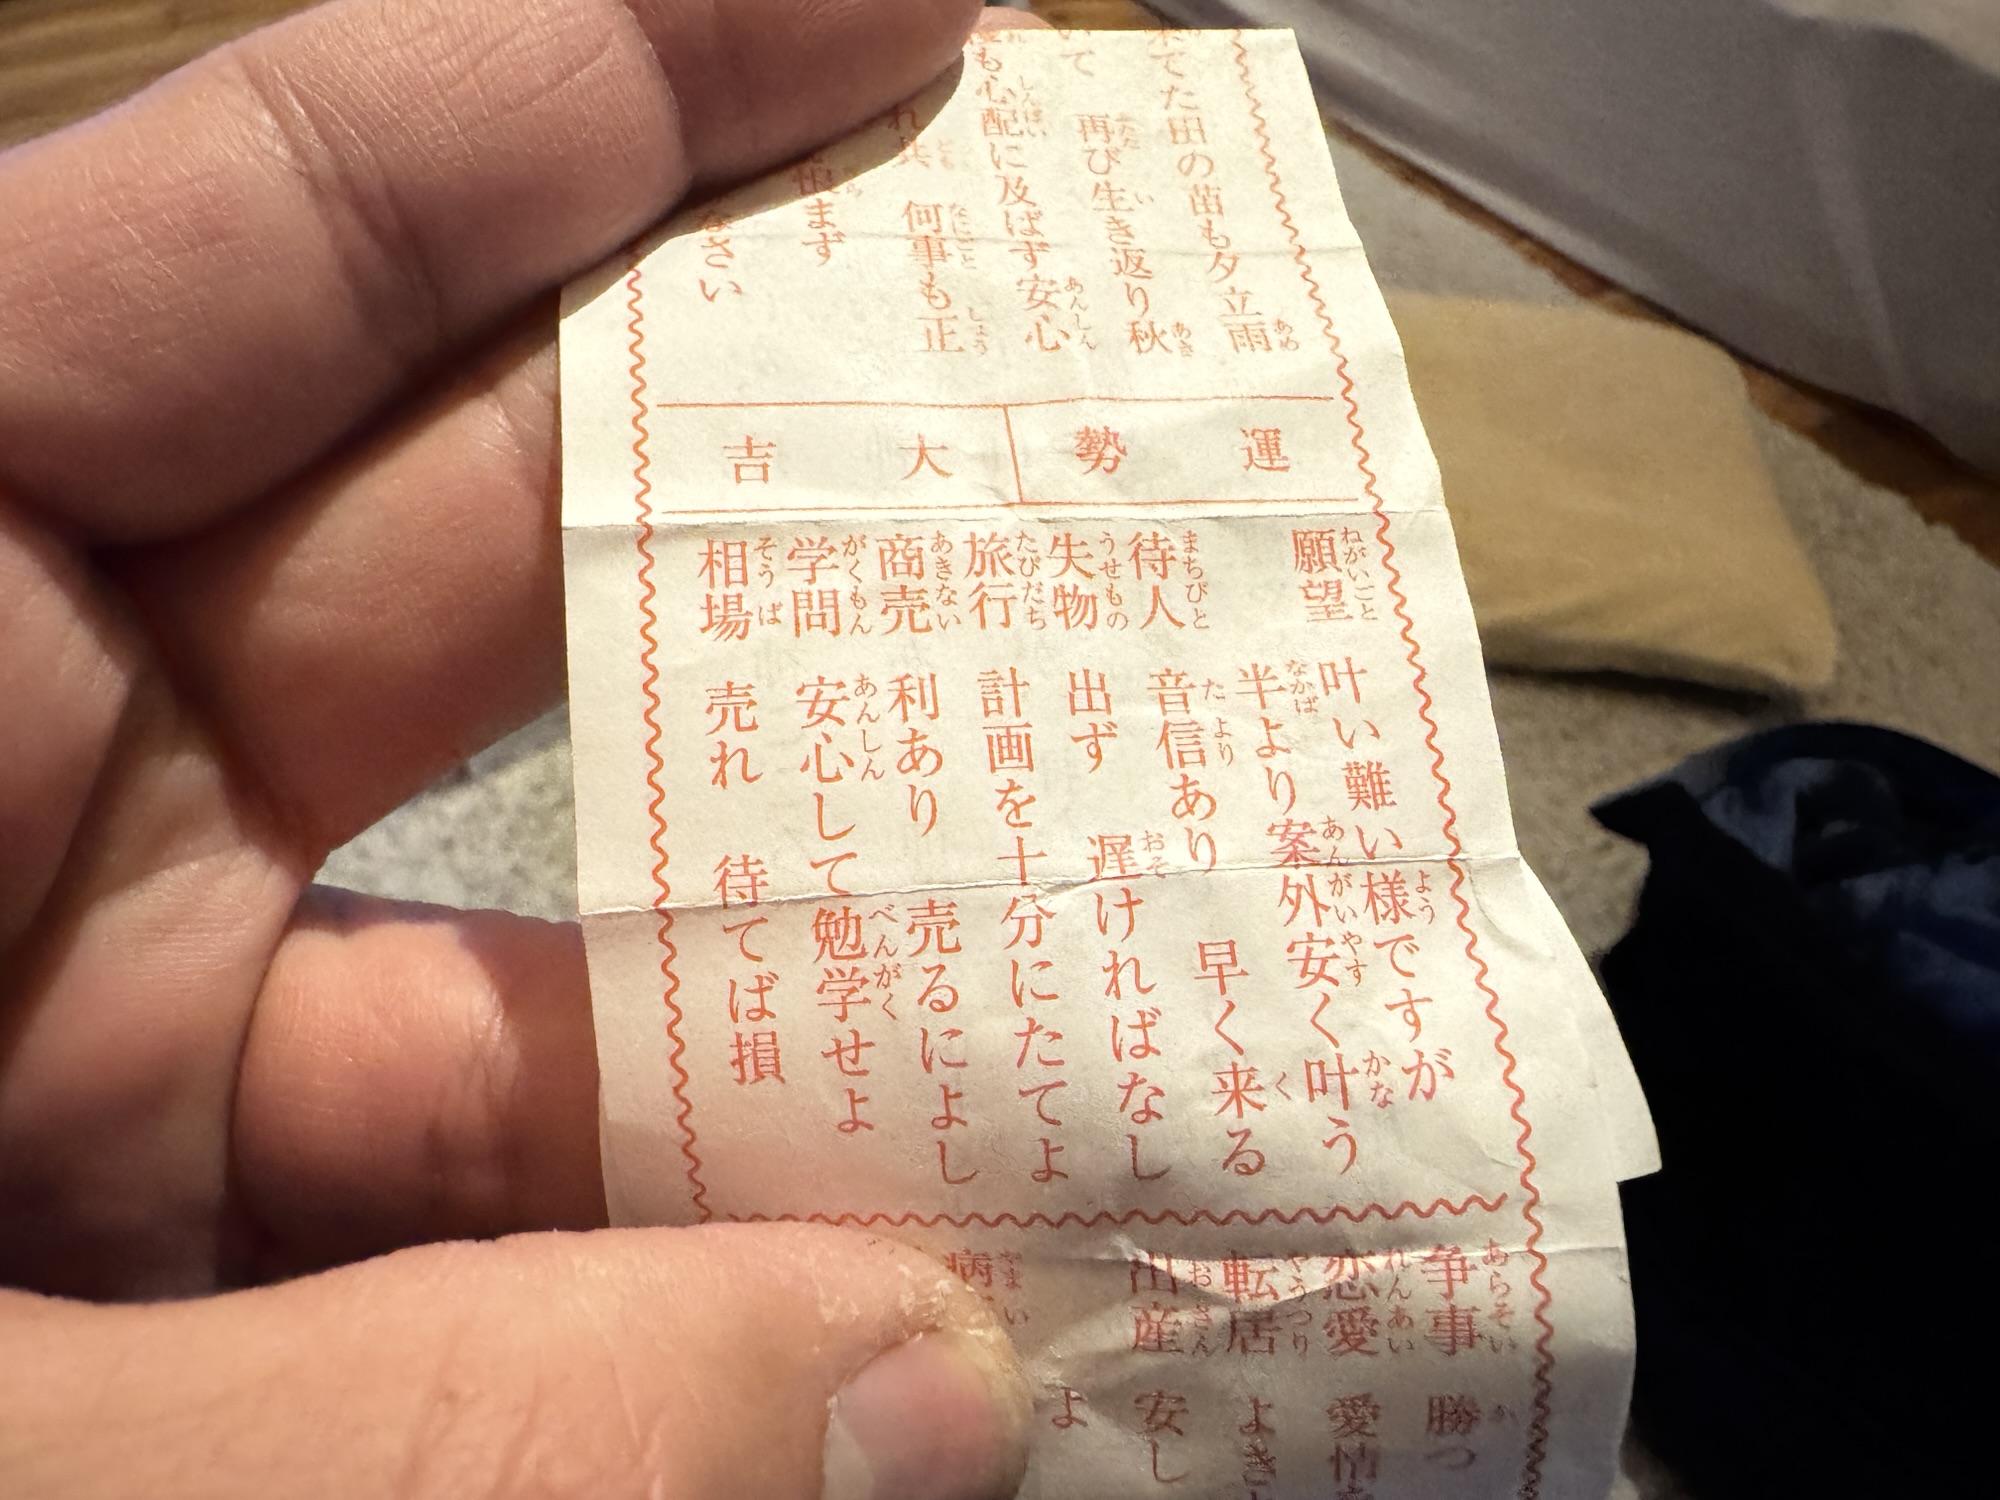 てた田の苗も夕立雨
いて 再び生き返り秋
も心配に及ばず安心
れ共 何事も正
まず
なさい
運勢 大吉
願望 叶い難い様ですが
半より案外安く叶う
待人 音信あり 早く来る
失物 出ず 遅ければなし
旅行 計画を十分にたてよ
商売 利あり 売るによし
学問 安心して勉学せよ
相場 売れ 待てば損
争事 勝つ
恋愛 愛情
転居 よき
出産 安し
よ
病